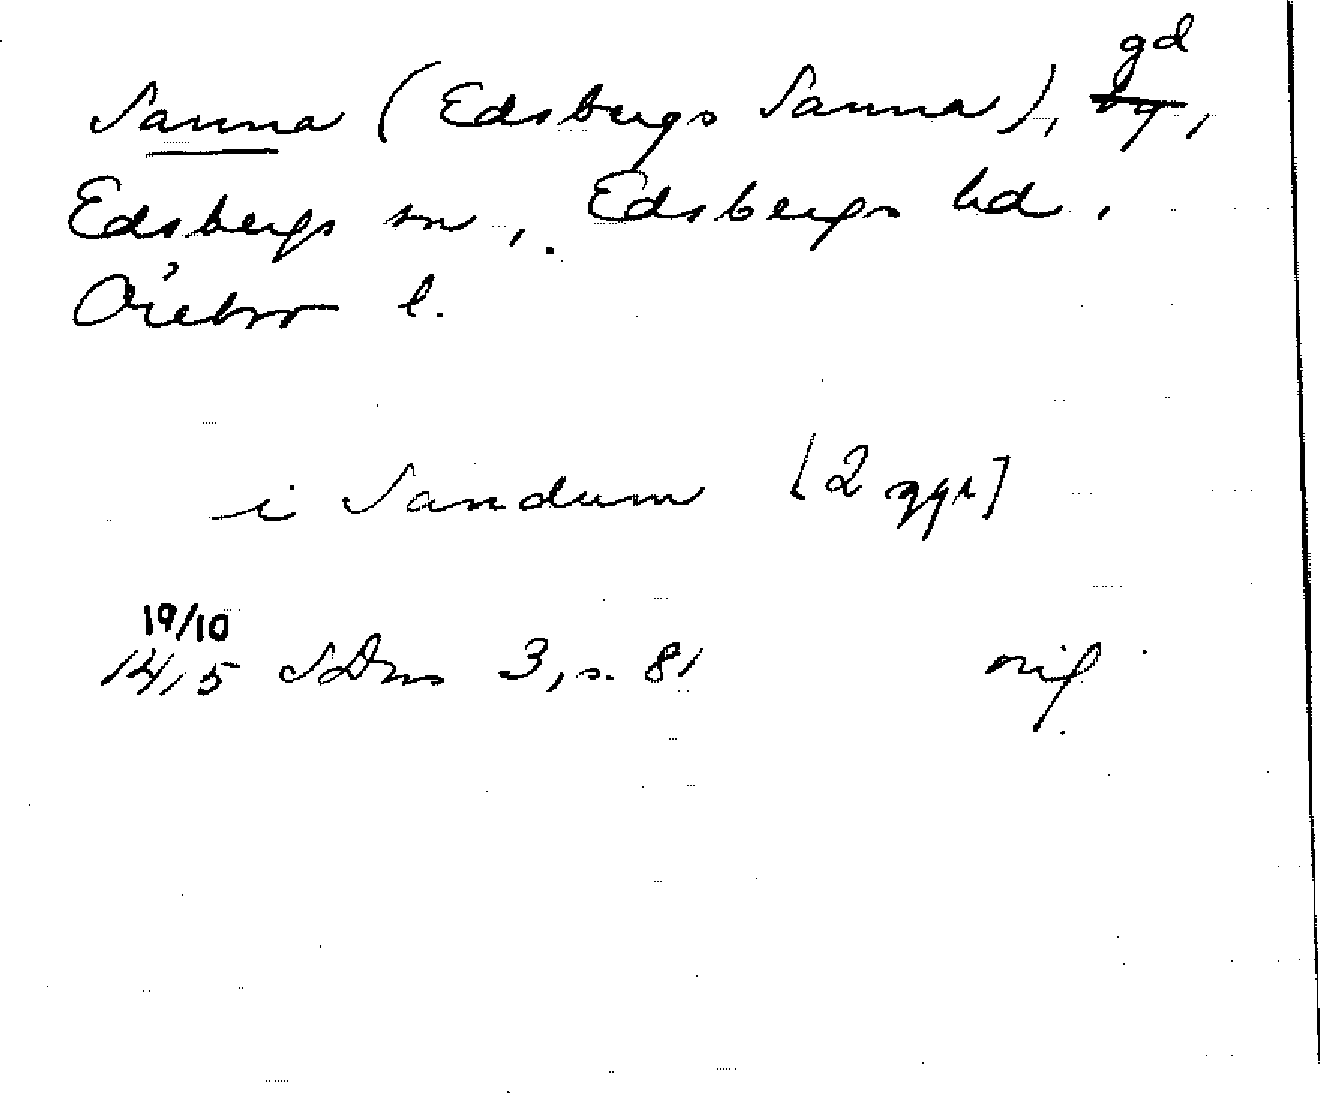 Sanna (Edsbergs Sanna), gd,
Edsbergs sn, Edsbergs hd,
Örebro l.
i Sandum [2 ggr]
19/10
1415 SDns 3, s. 81